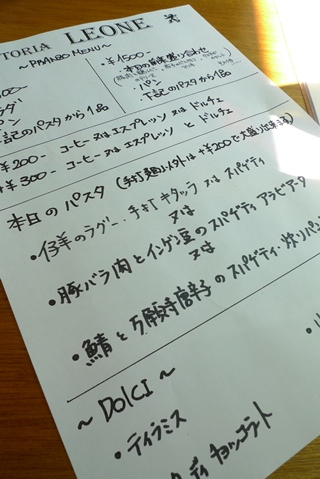 TORIA LEONE
~PRANZO MENU~
ラダ
パン
下記のパスタから1品
¥1500-
本日の前菜盛り合わせ
パン
下記のパスタから1品
+¥200- コーヒー 又は エスプレッソ 又は ドルチェ
+¥300- コーヒー 又は エスプレッソ と ドルチェ
本日のパスタ (手打麺以外は+¥200で大盛り出来ます)
・仔羊のラグー、手打キタッラ 又は スパゲティ
又は
・豚バラ肉とインゲン豆のスパゲティ アラビアータ
又は
・鯖と万願寺唐辛子のスパゲティ・
~DOLCI~
・ティラミス
ディ チョッコラート